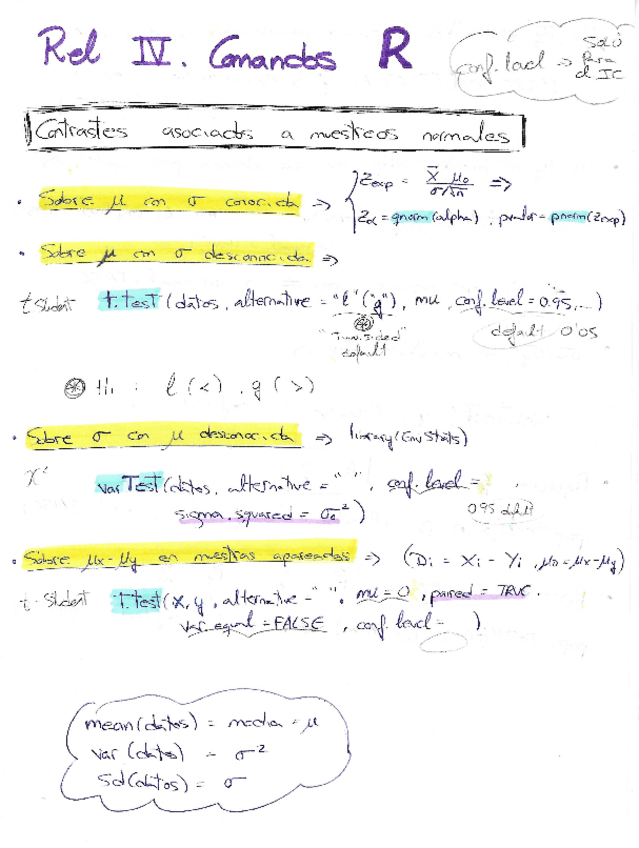 Rel IV. Comandos R
conf. level → solo para el IC
Contrastes asociados a muestreos normales
• Sobre μ con σ conocida ⇒ { Zexp = X̄ μ₀ / σ/√n ⇒
Zα = qnorm(alpha), pvalor = pnorm(Zexp)
• Sobre μ con σ desconocida ⇒
t Student t.test (datos, alternative = "l" ("g"), mu, conf. level = 0.95, ...)
"two.sided" default
default 0'05
⊛ H₁ : l (<) , g (>)
• Sobre σ con μ desconocida ⇒ library(EnvStats)
χ² varTest (datos, alternative = " ", conf. level =
0.95 default
sigma.squared = σ₀²)
• Sobre μx-μy en muestras apareadas ⇒ (Di = Xi - Yi , μD = μx-μy)
t-Student t.test (x, y, alternative = " ", mu = 0, paired = TRUE,
var.equal = FALSE, conf. level = )
mean(datos) = media = μ
var (datos) = σ²
sd(datos) = σ